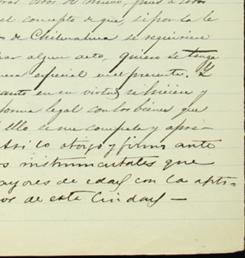 el concepto de que, si por la le
de Chihuahua se requiriere
algun acto, quiero se tenga
especial en el presente. Y
en su virtud se hiciere y
forma legal con los bienes que
ello se me compete y
Asi lo otorgo y firmo ante
os instrumentales que
ayores de edad con la apti
or de este Ciudad —